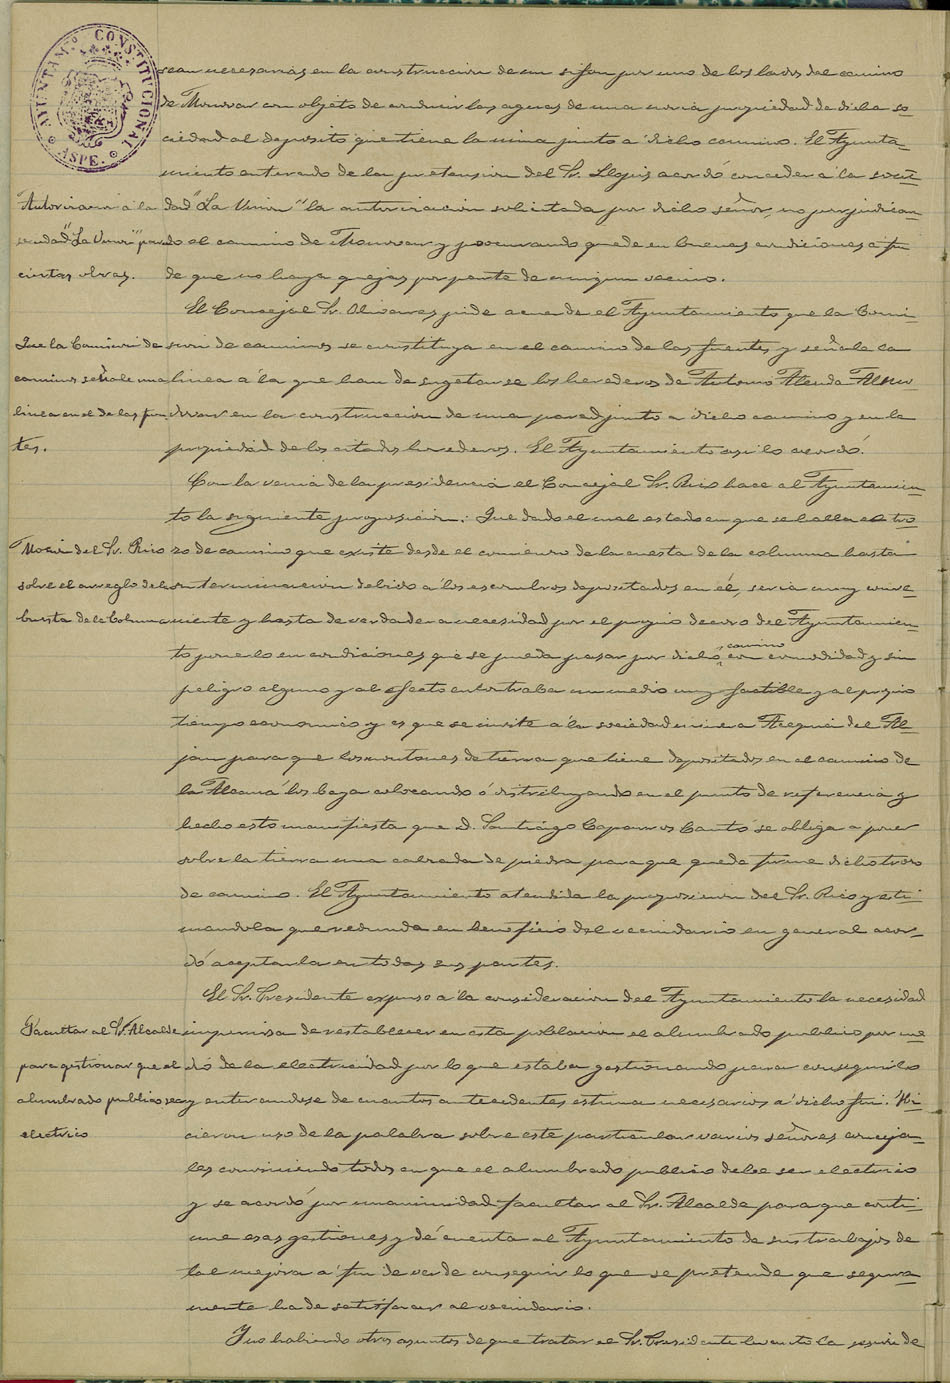 AYUNTAM.º CONSTITUCIONAL
ASPE.
sean necesarias en la construccion de un sifon por uno de los lados del camino
de Monovar con objeto de conducir las aguas de una noria propiedad de dicha so-
ciedad al deposito que tiene la misma junto á dicho camino. El Ayunta-
miento enterado de la pretension del Sr. Llopis acordó conceder á la socie-
Autorizacion á la
sociedad "La Union" para
ciertas obras.
dad "La Union" la autorizacion solicitada por dicho señor, no perjudican-
do el camino de Monovar y procurando quede en buenas condiciones á fin
de que no haya quejas por parte de ningun vecino.
El Concejal Sr. Olivares pide acuerde el Ayuntamiento que la Comi-
Que la Comision de
caminos señale una
linea en el de las fuen
tes.
sion de caminos se constituya en el camino de las fuentes y señale la
linea á la que han de sugetarse los herederos de Antonio Alenda
en la construccion de una pared junto a dicho camino y en la
propiedad de los citados herederos. El Ayuntamiento asi lo acordó.
Con la venia de la presidencia el Concejal Sr. Rico hace al Ayuntamien-
to la siguiente proposicion: Que dado el mal estado en que se halla el tro-
Mocion del Sr. Rico
sobre el arreglo de la
cuesta de la Columna
zo de camino que existe desde el comienzo de la cuesta de la columna hasta
su terminacion debido á los escombros depositados en él, seria muy conve-
niente y hasta de verdadera necesidad por el propio decoro del Ayuntamien-
to ponerlo en condiciones que se pueda pasar por dicho camino con comodidad y sin
peligro alguno y al efecto encontraba un medio muy factible y al propio
tiempo economico y es que se invite á la sociedad minera Acequia del Al-
jau para que los montones de tierra que tiene depositados en el camino de
la Alcaná los vaya colocando ó distribuyendo en el punto de referencia y
hecho esto manifiesta que D. Santiágo Caparros Cantó se obliga a poner
sobre la tierra una calzada de piedra para que quede firme dicho trozo
de camino. El Ayuntamiento atendida la proposicion del Sr. Rico y esti-
mandola que redunda en beneficio del vecindario en general acor-
dó aceptarla en todas sus partes.
El Sr. Presidente expuso á la consideracion del Ayuntamiento la necesidad
Facultar al Sr. Alcalde
para gestionar que el
alumbrado publico sea
electrico
imperiosa de restablecer en esta poblacion el alumbrado publico por me-
dio de la electricidad por lo que estaba gestionando para conseguirlo
y enterandose de cuantos antecedentes estima necesarios á dicho fin. Hi-
cieron uso de la palabra sobre este particular varios señores conceja-
les conviniendo todos en que el alumbrado publico debe ser electrico
y se acordó por unanimidad facultar al Sr. Alcalde para que conti-
nue esas gestiones y dé cuenta al Ayuntamiento de sus trabajos de
tal mejora á fin de ver de conseguir lo que se pretende que segura-
mente ha de satisfacer al vecindario.
Y no habiendo otros asuntos de que tratar el Sr. Presidente levantó la sesion de